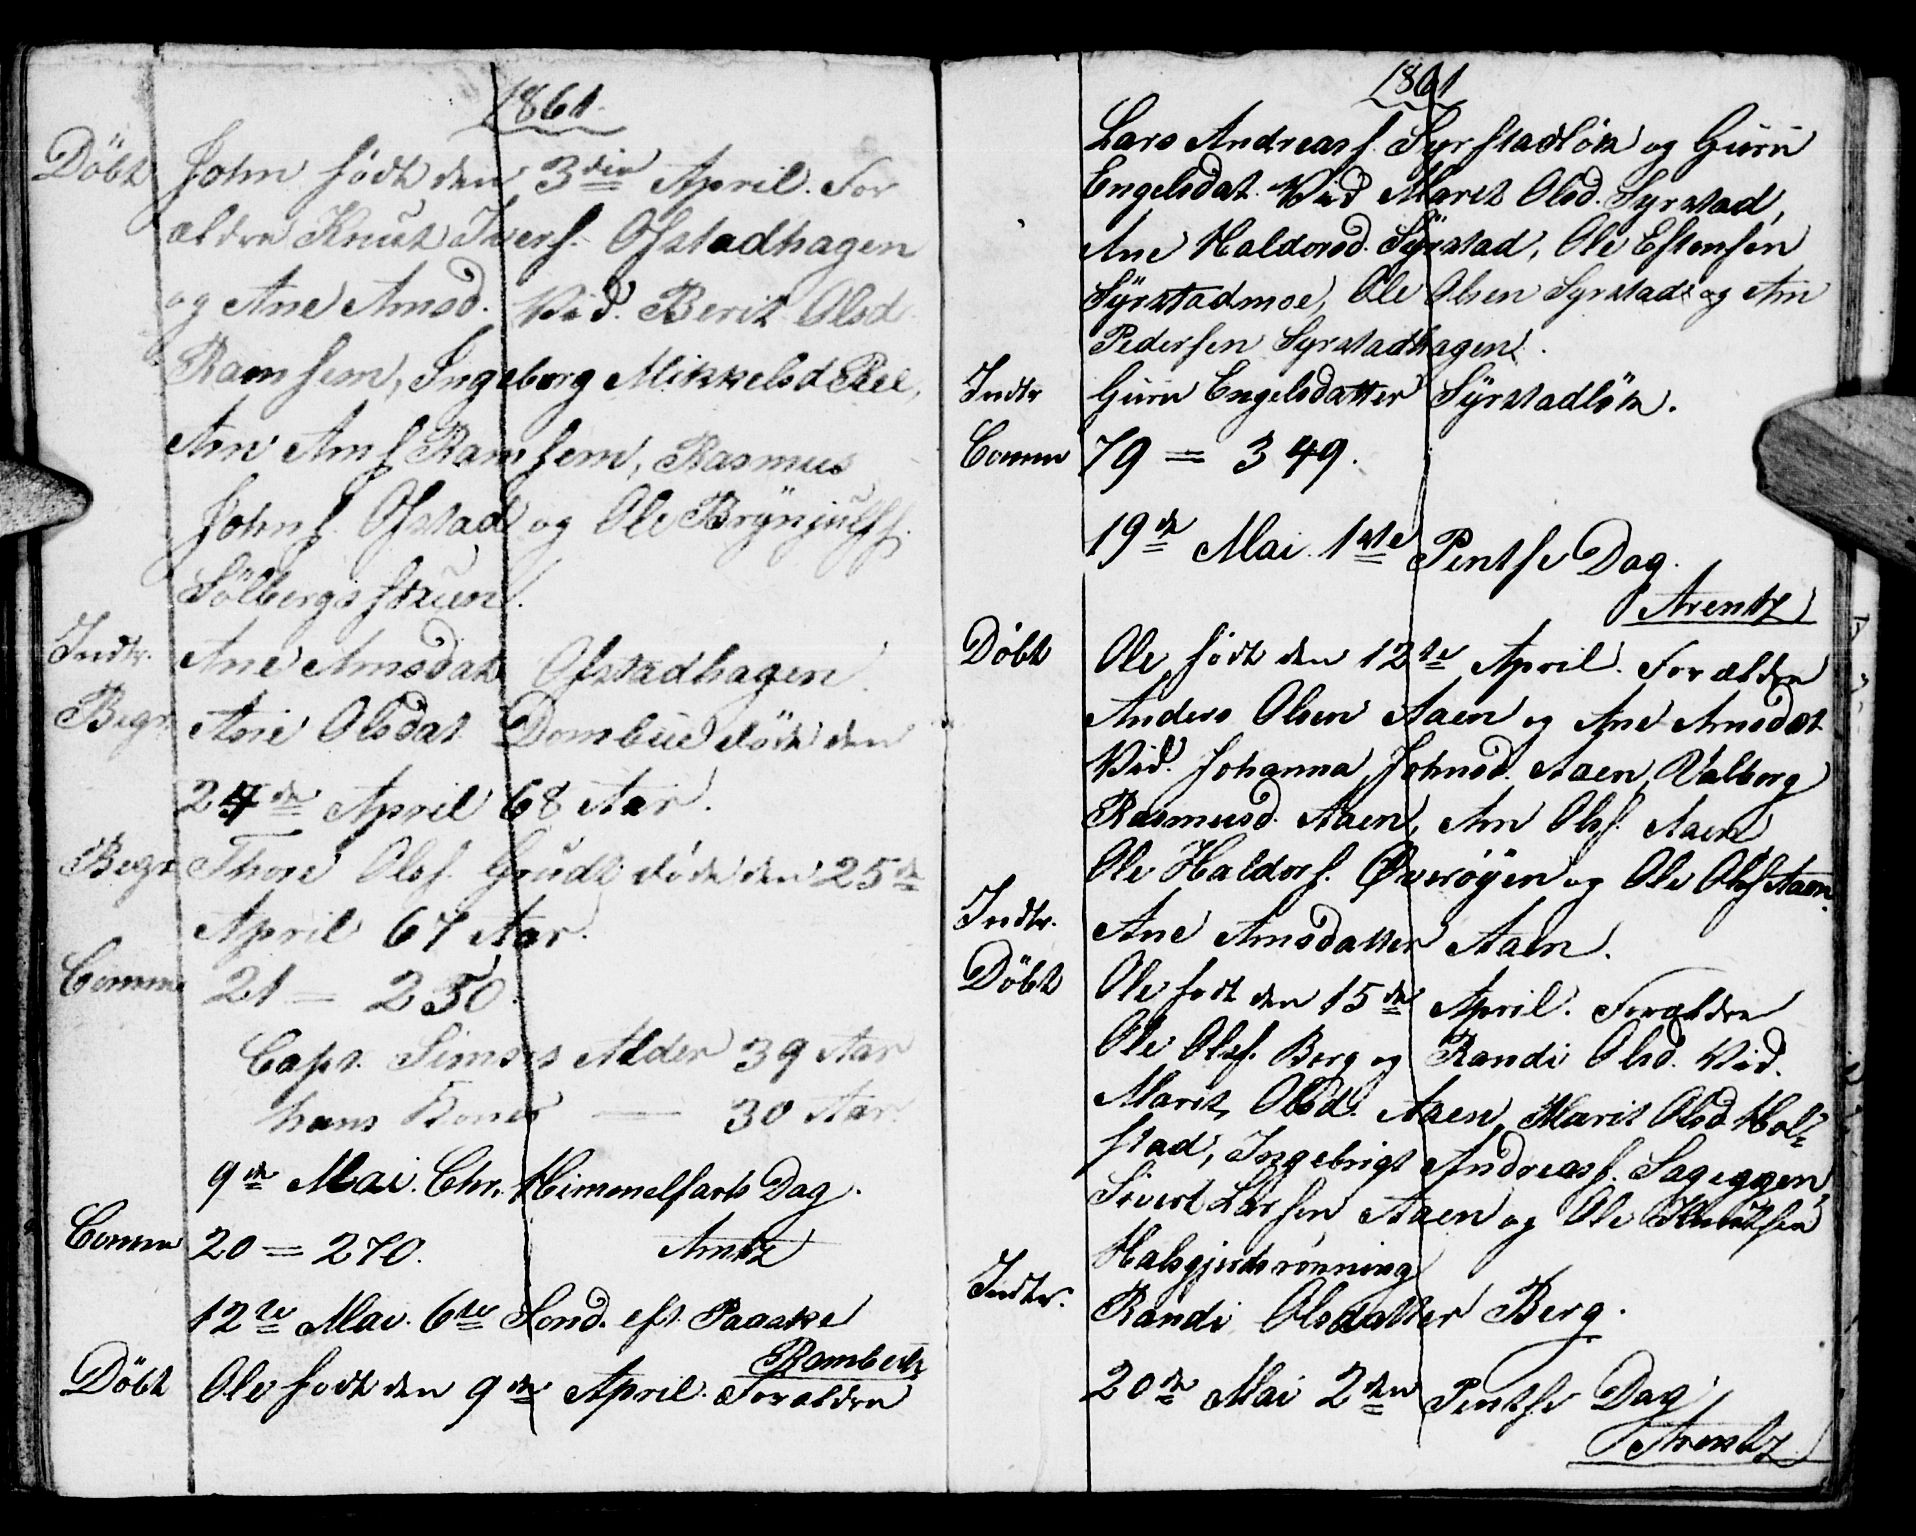 1861.
Döbt John födt den 3die April. For
ældre Knut Iverf. Ofstadhagen
og Ane Arnsd. Vid. Berit Olsd.
Ramsem, Ingeborg Mikkelsd Ree,
Arn Arnf Ramsem, Rasmus
Johnf. Ofstad og Ole Brynjulff.
Sölbergs
Indtr. Ane Arnsdat Ofstadhagen.
Begr. Ane Olsdat Dombue döde den
24de April 68 Aar.
Begr Thore Olsf. Grudt döde den 25de
April 67 Aar.
Comm 21 = 250.
Capt. Simons Alder 39 Aar
hans Kones — 30 Aar.
9de Mai. Chr. Himmelfarts Dag.
Comm 20 = 270. Arntz
12te Mai. 6te Sönd. eft. Paaske
Rambech
Döbt Ole födt den 9de April. Forældre
1861
Lars Andreasf. Syrstadlök og Guru
Engelsdat. Vid Marit Olsd. Syrstad,
Ane Haldorsd. Syrstad, Ole Estensen
Syrstadmoe, Ole Olsen Syrstad og Arn
Pedersen Syrstadhagen.
Indtr Guru Engelsdatter Syrstadlök.
Comm 79 = 349.
19de Mai 1ste Pintse Dag.
Arentz
Döbt Ole födt den 12te April. Forældre
Anders Olsen Aaen og Ane Arnsdat.
Vid. Johanna Johnsd. Aaen, Valborg
Rasmusd. Aaen, Arn Olsf. Aaen
Ole Haldorf. Øverøyen og Ole Olsf Aaen.
Indtr. Ane Arnsdatter Aaen.
Döbt Ole födt den 15de April. Forældre
Ole Olsf. Berg og Randi Olsd. Vid.
Marit Olsd. Aaen, Marit Olsd Hol-
stad, Ingebrigt Andreasf. Sageggen,
Sivert Larsen Aaen og Ole Knutsen
Halsgjerdsrønning
Indtr. Randi Olsdatter Berg.
20de Mai 2den Pintse Dag
Arentz